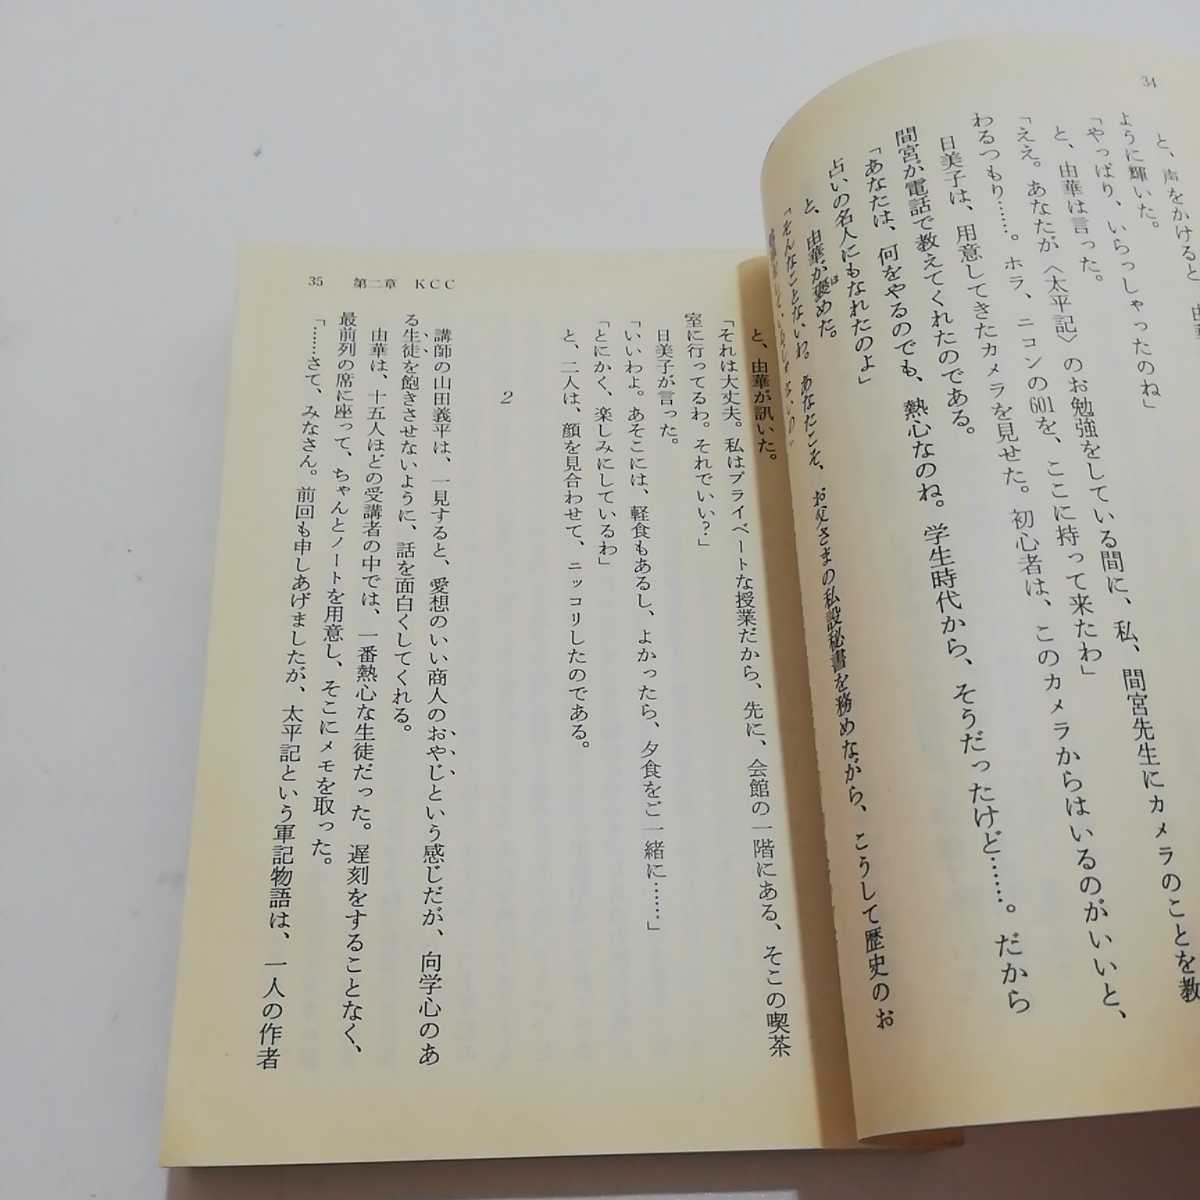 34
と、声をかけると、由華
ように輝いた。
「やっぱり、いらっしゃったのね」
と、由華は言った。
「ええ。あなたが〈太平記〉のお勉強をしている間に、私、間宮先生にカメラのことを教
わるつもり……。ホラ、ニコンの601を、ここに持って来たわ」
日美子は、用意してきたカメラを見せた。初心者は、このカメラからはいるのがいいと、
間宮が電話で教えてくれたのである。
「あなたは、何をやるのでも、熱心なのね。学生時代から、そうだったけど……。だから
占いの名人にもなれたのよ」
と、由華が褒めた。
「そんなことないわ。あなたこそ、お父さまの私設秘書を務めながら、こうして歴史のお
35 第二章 KCC
と、由華が訊いた。
「それは大丈夫。私はプライベートな授業だから、先に、会館の一階にある、そこの喫茶
室に行ってるわ。それでいい?」
日美子が言った。
「いいわよ。あそこには、軽食もあるし、よかったら、夕食をご一緒に……」
「とにかく、楽しみにしているわ」
と、二人は、顔を見合わせて、ニッコリしたのである。
2
講師の山田義平は、一見すると、愛想のいい商人のおやじという感じだが、向学心のあ
る生徒を飽きさせないように、話を面白くしてくれる。
由華は、十五人ほどの受講者の中では、一番熱心な生徒だった。遅刻をすることなく、
最前列の席に座って、ちゃんとノートを用意し、そこにメモを取った。
「……さて、みなさん。前回も申しあげましたが、太平記という軍記物語は、一人の作者